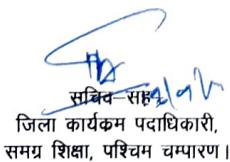 सचिव–सह
जिला कार्यक्रम पदाधिकारी,
समग्र शिक्षा, पश्चिम चम्पारण।